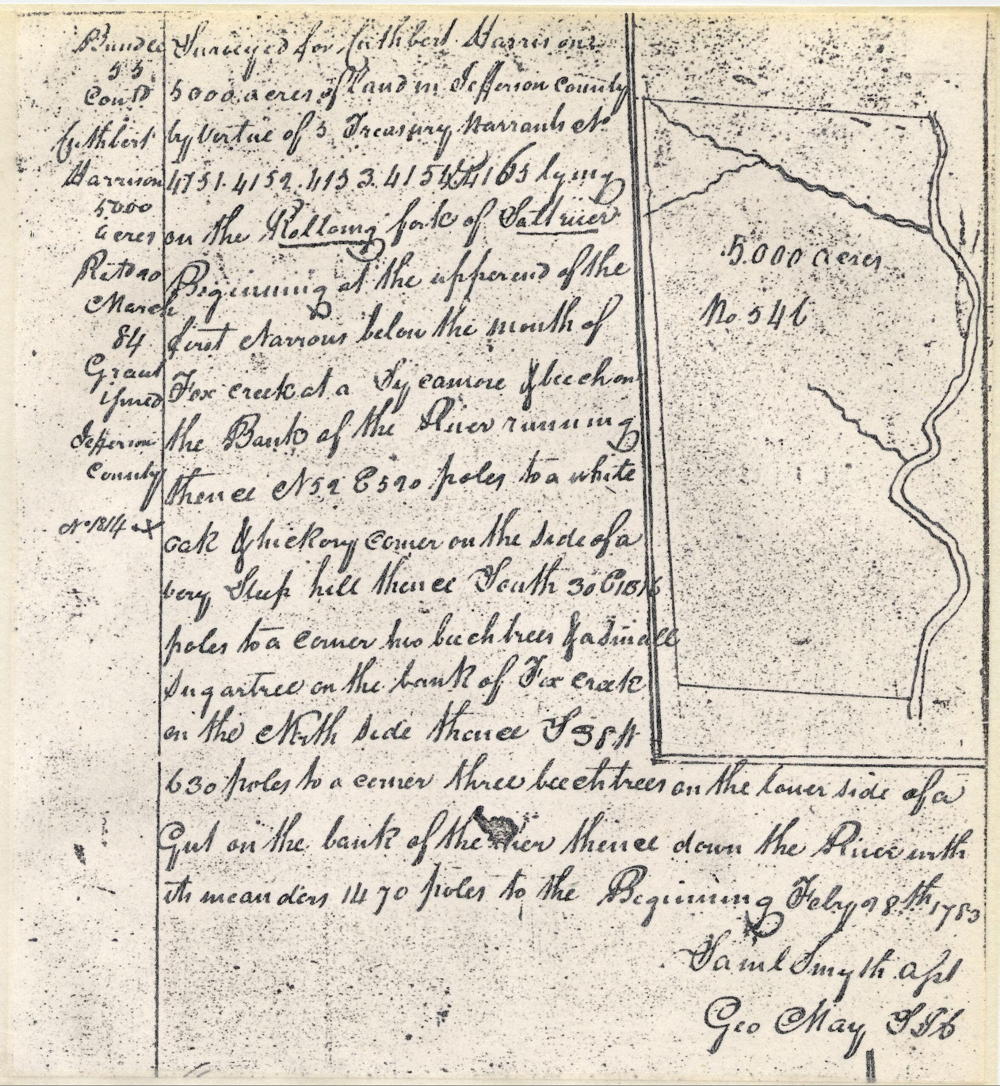 Bundle
55
Cont'd
Cuthbert
Harrison
5000
acres
March
84
Grant
issued
Jefferson
County
No 1814
Surveyed for Cuthbert Harrison
5000 acres of land in Jefferson County
by Vertue of 5 Treasury Warrants No
4751. 4152. 4153. 4154 & 4165 lying
on the Rolling fork of Saltriver
Beginning at the upperend of the
first Narrows below the mouth of
Fox creek at a Sycamore & beech on
the Bank of the River running
thence N52 E520 poles to a white
oak & hickory corner on the side of a
very Steep hill thence South 30 E1816
poles to a corner two beech trees & a small
Sugartree on the bank of Fox creek
on the North side thence S38W
630 poles to a corner three beech trees on the lower side of a
Gut on the bank of the River thence down the River with
its meanders 1470 poles to the Beginning Feby 28th 1783
Saml Smyth Asst
Geo May SJC
5.000 acres
No 546